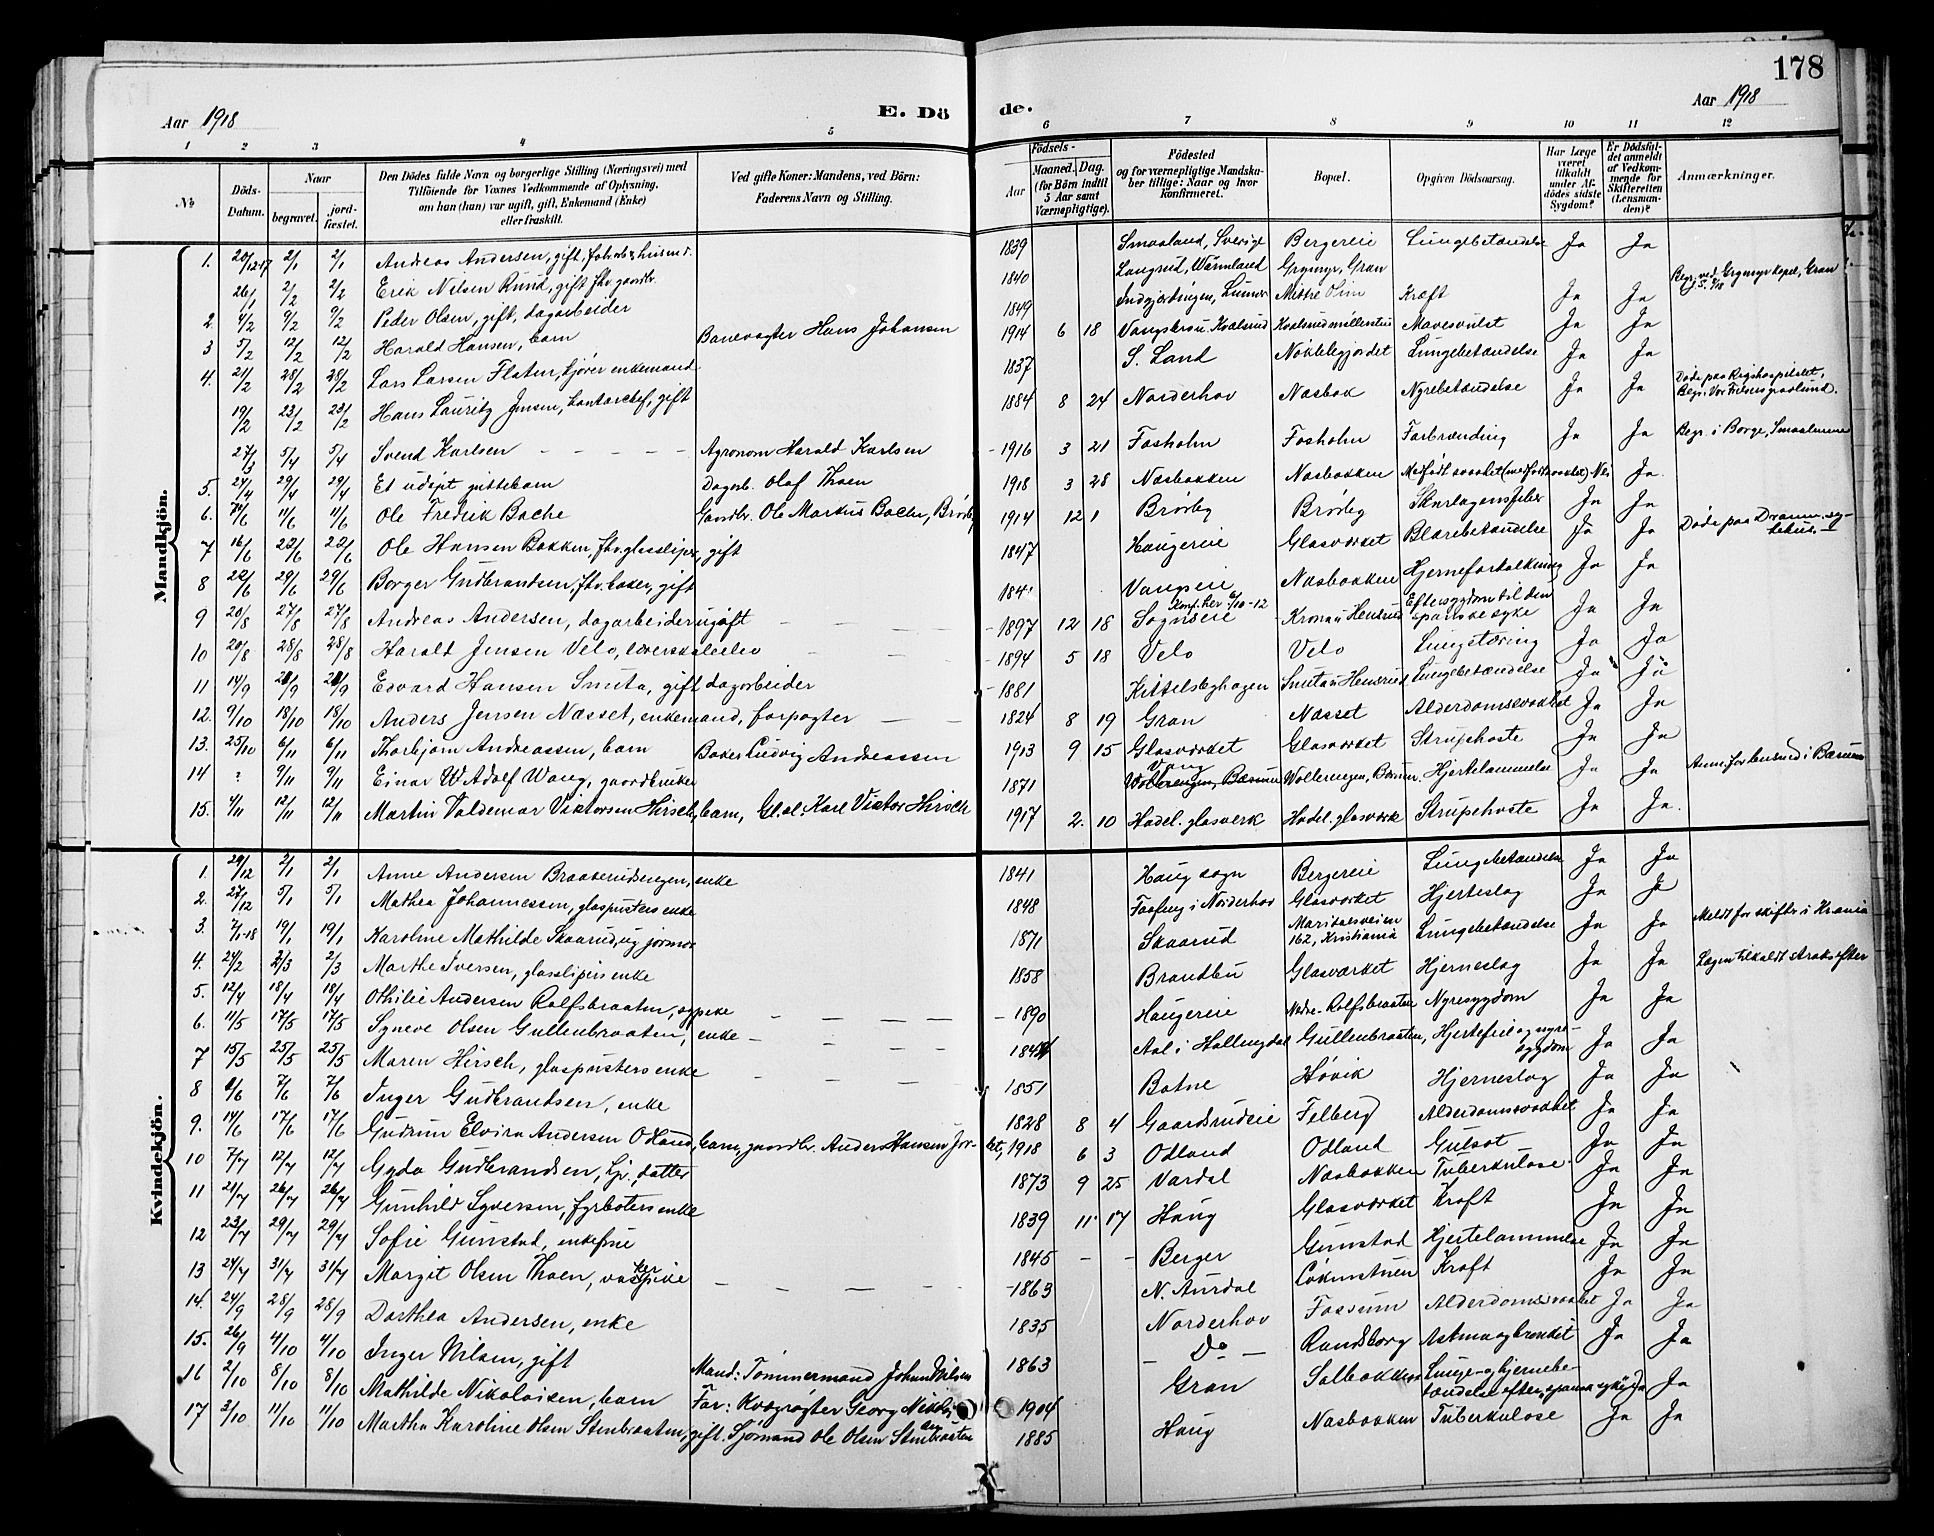 178
Aar 1918
E. Dö
de.
Aar 1918
1 2 3 4 5 6 7 8 9 10 11 12
№
Döds-Datum.
Naar
begravet.
jord-fæstet.
Den Dödes fulde Navn og borgerlige Stilling (Næringsvei) med
Tilföiende for Voxnes Vedkommende af Oplysning,
om han (hun) var ugift, gift, Enkemand (Enke)
eller fraskilt.
Ved gifte Koner: Mandens, ved Börn:
Faderens Navn og Stilling.
Födsels-
Aar
Maaned. Dag.
(for Börn indtil
5 Aar samt
Værnepligtige).
Födested
og for værnepligtige Mandska-
ber tillige: Naar og hvor
konfirmeret.
Bopæl.
Opgiven Dödsaarsag.
Har Læge
været
tilkaldt
under Af-
dödes sidste
Sygdom?
Er Dödsfal-
det anmeldt
af Vedkom-
mende for
Skifteretten
(Lensman-
den)?
Anmærkninger.
Mandkjön.
1. 20/12-17 2/1 2/1 Andreas Andersen, gift, fhv. husmd. 1839 Smaaland, Sverige Bergereie Lungebetændelse Ja Ja
26/1 2/2 2/2 Erik Nilsen Rund, gift fhv. gaardbr. 1840 Langrud, Wärmland Grymyr, Gran Begr. ved Grymyr kapel, Gran
2. 4/2 9/2 9/2 Peder Olsen, gift, dagarbeider 1849 Indgjerdingen, Lunner Mestre Olim Kræft Ja Ja
3 5/2 12/2 12/2 Harald Hansen, barn Banevogter Hans Johansen 1914 6 18 Mavesvulst Ja Ja
4. 21/2 28/2 28/2 Lars Larsen Flatun, kjører enkemand. 1837 S. Land Nøklebygjordet Lungebetændelse Ja Ja
19/2 23/2 23/2 Hans Lauritz Jensen, kontorchef, gift 1884 8 24 Norderhov Næsbak Nyrebetændelse Ja Ja Døde paa Rigshospitalet, Begr. Vor Frelsers gravlund.
27/3 5/4 5/4 Svend Karlsen Agronom Harald Karlsen 1916 3 21 Fosholm Fosholm Forbrænding Ja Ja Begr. i Borge, Smaalenene
5. 24/4 29/4 29/4 Et udøpt guttebarn Dagarb. Olaf Thoen 1918 3 28 Næsbakken Næsbakken Medfødt svaket (medfødt svaket) Nei Ja
6. 7/6 11/6 11/6 Ole Fredrik Bache Gaardbr. Ole Markus Bache, Brørby 1914 12 1 Brørby Brørby Skarlagensfeber Ja Ja Døde paa Dramm. sykehus.
7 16/6 23/6 23/6 Ole Hansen Bakken, fhv. glassliper, gift 1847 Haugereie Glasværket Blærebetændelse Ja Ja
8 22/6 29/6 29/6 Borger Gudbrandsen, fhv. baker, gift 1841 Vangseie Næsbakken Hjerneforkalkning Ja Ja
9 20/8 27/8 27/8 Andreas Andersen, dagarbeider ugift 1897 12 18 Sognseie Konf. her 6/10-12 Krona u/ Hensrud Eftersygdom til den spanske syke Ja Ja
10 20/8 28/8 28/8 Harald Jensen Velo, lærerskoleelev 1894 5 18 Velo Velo Lungetæring Ja Ja
11 14/9 21/9 21/9 Edvard Hansen Smuta, gift dagarbeider 1881 Kittelsbyhagen Smuta u/ Hensrud Lungebetændelse Ja Ja
12. 9/10 18/10 18/10 Anders Jensen Næsset, enkemand, forpagter 1824 8 19 Gran Næsset Alderdomssvakhet Ja Ja
13. 25/10 6/11 6/11 Thorbjørn Andreassen, barn Baker Ludvig Andreassen 1913 9 15 Glasværket Glasværket Strupehoste Ja Ja
14 ? 9/11 9/11 Einar W. Adolf Wang, gaardbruker 1871 Vang Wollerengen, Bærum Wollerengen, Bærum. Hjertelammelse Ja Ja Anm. for lensmd. i Bærum
15. 4/11 12/11 12/11 Martin Valdemar Viktorsen Hirsch, barn, Gl.sl. Karl Victor Hirsch 1917 2. 10 Hadel. glasverk Hadel. glasværk Strupehoste Ja Ja.
Kvindekjön.
1. 29/12 2/1 2/1 Anne Andersen Braakerudsengen, enke 1841 Haug sogn Bergereie Lungebetændelse Ja Ja
2. 27/12 5/1 5/1 Mathea Johannessen, glaspusters enke 1848 Norderhov Glasværket Hjerteslag Ja Ja
3. 7/1-18 19/1 19/1 Karoline Mathilde Skaarud, ug jormor 1871 Skaarud Maridalsveien 162, Kristiania Lungebetændelse Ja Ja Meldt for skifter i Krania
4. 24/2 2/3 2/3 Marthe Iversen, glasslipers enke 1858 Brandbu Glasværket Hjerneslag Ja Ja Lægen tilkaldt straks efter
5. 12/4 18/4 18/4 Othilie Andersen Rolfsbraaten, ugpike 1890 Haugereie Nedre-Rolfsbraaten Nyresygdom Ja Ja
6. 11/5 17/5 17/5 Synøve Olsen Gullenbraaten, enke Aal i Hallingdal Gullenbraaten, Hjertefeil og nyresygdom Ja Ja
7 15/5 25/5 25/5 Maren Hirsch, glaspusters enke 1851 Botne Høvik Hjerneslag Ja Ja
8 1/6 7/6 7/6 Inger Gudbrandsen, enke 1828 8 4 Gaardsrudeie Felberg Alderdomssvakhet Ja Ja
9. 14/6 17/6 17/6 Gudrun Elvira Andersen Odland, barn, gaardbr. Anders Hansen Jor-det, 1918 6 3 Odland Odland Gulsot Ja Ja
10 7/7 12/7 12/7 Gyda Gudbrandsen, lj. datter 1873 9 25 Vardal Næsbakken Tuberkulose Ja Ja
11 21/7 26/7 26/7 Gunhild Syversen, fyrbøters enke 1839 11 17 Haug Glasværket Kræft Ja Ja
12 23/7 29/7 29/7 Sofie Gunstad, enkefrue 1845 Berger Gunstad Hjertelammelse Ja Ja
13 24/7 31/7 31/7 Margit Olsen Thoen, vaskerpike 1863 N. Aurdal Kræft Ja Ja
14. 24/9 28/9 28/9 Dorthea Andersen, enke 1835 Norderhov Fossum Alderdomssvakhet Ja Ja
15. 26/9 4/10 4/10 Inger Nilsen, gift Mand: Tømmermand Johan Nilsen 1863 Do Randsborg Astma og bronkit Ja Ja
16 2/10 8/10 8/10 Mathilde Nikolaisen, barn Far: Kvægrøgter Georg Nikolaisen 1904 Gran Solbakken Lunge- og hjernebetændelse efter spansk syke Ja Ja
17 3/10 11/10 11/10 Martha Karoline Olsen Stenbraaten, gift. Sjømand Ole Olsen Stenbraaten 1885 Haug Næsbakken Tuberkulose Ja Ja